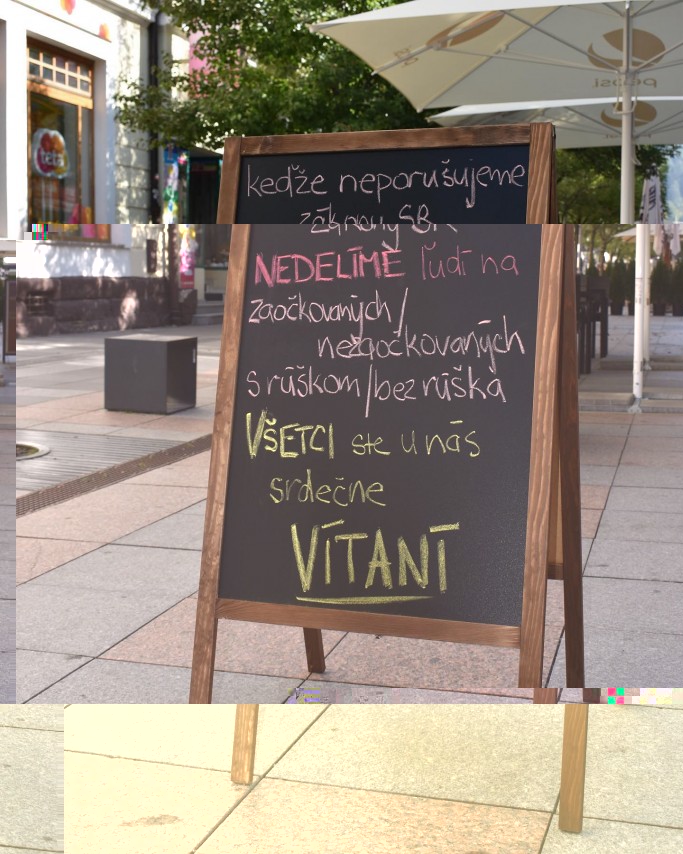 keďže neporušujeme
zákony SR
NEDELÍME ľudí na
zaočkovaných/
nezaočkovaných
s rúškom/bez rúška
VŠETCI ste u nás
srdečne
VÍTANÍ
teta
pepsi